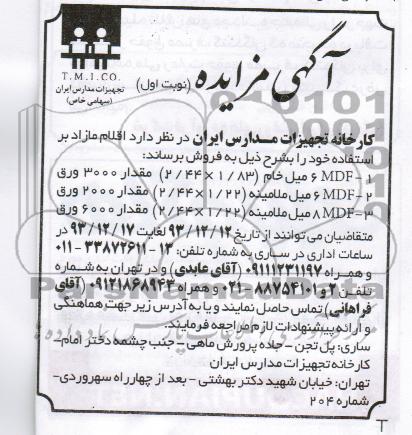 آگهی مزایده (نوبت اول)
T.M.I.CO.
تجهیزات مدارس ایران
(سهامی خاص)
کارخانه تجهیزات مدارس ایران در نظر دارد اقلام مازاد بر
استفاده خود را بشرح ذیل به فروش برساند:
۱- MDF ۶ میل خام (۱/۸۳ × ۲/۴۴) مقدار ۳۰۰۰ ورق
۲- MDF ۶ میل ملامینه (۱/۲۲ × ۲/۴۴) مقدار ۲۰۰۰ ورق
۳- MDF ۸ میل ملامینه (۱/۲۲ × ۲/۴۴) مقدار ۶۰۰۰ ورق
متقاضیان می توانند از تاریخ ۹۳/۱۲/۱۲ لغایت ۹۳/۱۲/۱۷ در
ساعات اداری در ساری به شماره تلفن: ۱۳-۳۳۸۷۲۶۱۱-۰۱۱
و همراه ۰۹۱۱۱۲۳۱۱۹۷ (آقای عابدی) و در تهران به شماره
تلفن ۲ و ۸۸۷۵۴۱۰۱-۰۲۱ و همراه ۰۹۱۲۱۸۶۸۹۴۳ (آقای
فراهانی) تماس حاصل نمایند و یا به آدرس زیر جهت هماهنگی
و ارائه پیشنهادات لازم مراجعه فرمایند.
ساری: پل تجن - جاده پرورش ماهی - جنب چشمه دختر امام-
کارخانه تجهیزات مدارس ایران
تهران: خیابان شهید دکتر بهشتی - بعد از چهارراه سهروردی-
شماره ۲۰۴
T